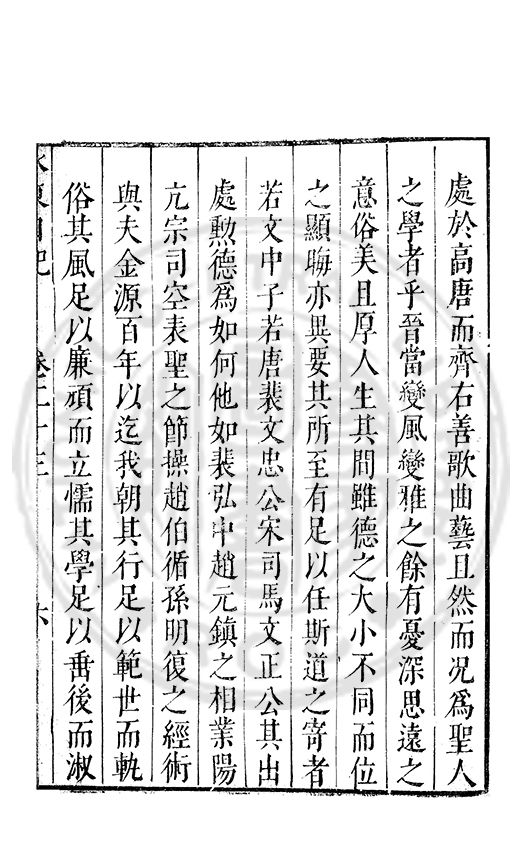 處於高唐而齊右善歌曲藝且然而况爲聖人
之學者乎晉當變風變雅之餘有憂深思遠之
意俗美且厚人生其間雖德之大小不同而位
之顯晦亦異要其所至有足以任斯道之寄者
若文中子若唐裴文忠公宋司馬文正公其出
處勲德爲如何他如裴弘中趙元鎮之相業陽
亢宗司空表聖之節操趙伯循孫明復之經術
與夫金源百年以迄我朝其行足以範世而軌
俗其風足以廉頑而立懦其學足以垂後而淑
水東日記 卷二十三 六